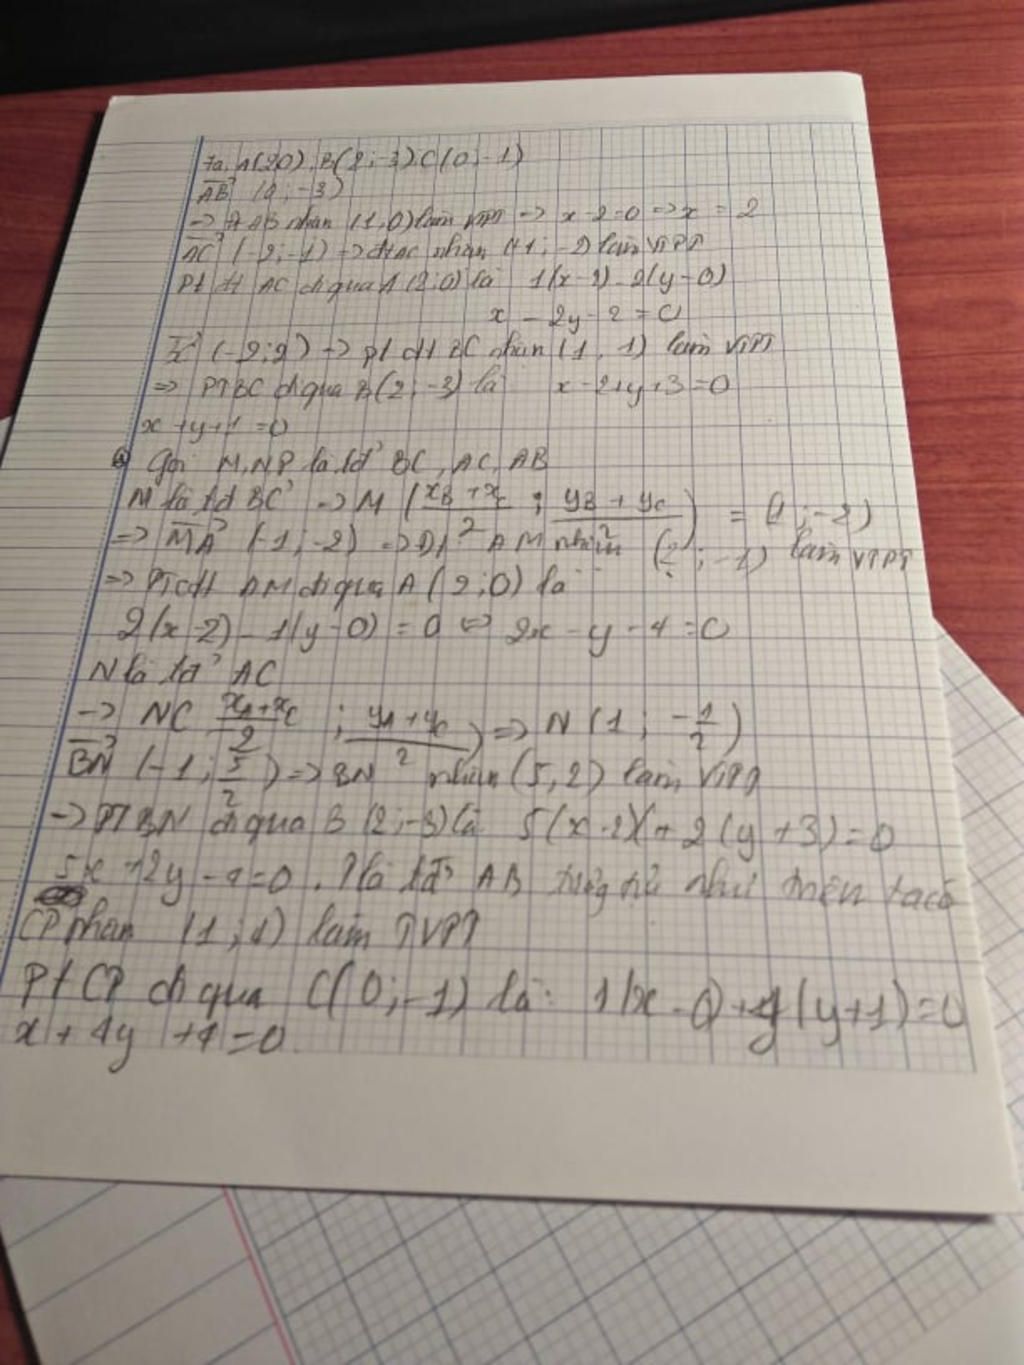 7a. A(2,0), B(2;-3) C(0;-1)
AB (0;-3)
-> đt AB nhận (1,0) làm VTPT -> x-2=0 => x = 2
AC (-2;-1) -> đt AC nhận (1;-2) làm VTPT
Pt đt AC đi qua A(2;0) là 1(x-2)-2(y-0)
x - 2y - 2 = 0
BC (-2;2) -> pt đt BC nhận (1,1) làm VTPT
=> PT BC đi qua B(2;-3) là x-2+y+3=0
x+y+1=0
Gọi M,N,P là tđ BC, AC, AB
M là tđ BC -> M (xB+xC/2 ; yB+yC/2) = (1;-2)
=> MA (-1;-2) => Đt AM nhận (2;-1) làm VTPT
=> PT đt AM đi qua A(2;0) là
2(x-2)-1(y-0)=0 <=> 2x-y-4=0
N là tđ AC
-> N( xA+xC/2 ; yA+yC/2) => N(1;-1/2)
BN (-1; 5/2) => BN nhận (5,2) làm VTPT
-> PT BN đi qua B(2;-3) là 5(x-2)+2(y+3)=0
5x+2y-4=0. P là tđ AB tương tự như trên ta có
CP nhận (1;4) làm TVPT
Pt CP đi qua C(0;-1) là: 1(x-0)+4(y+1)=0
x+4y+4=0